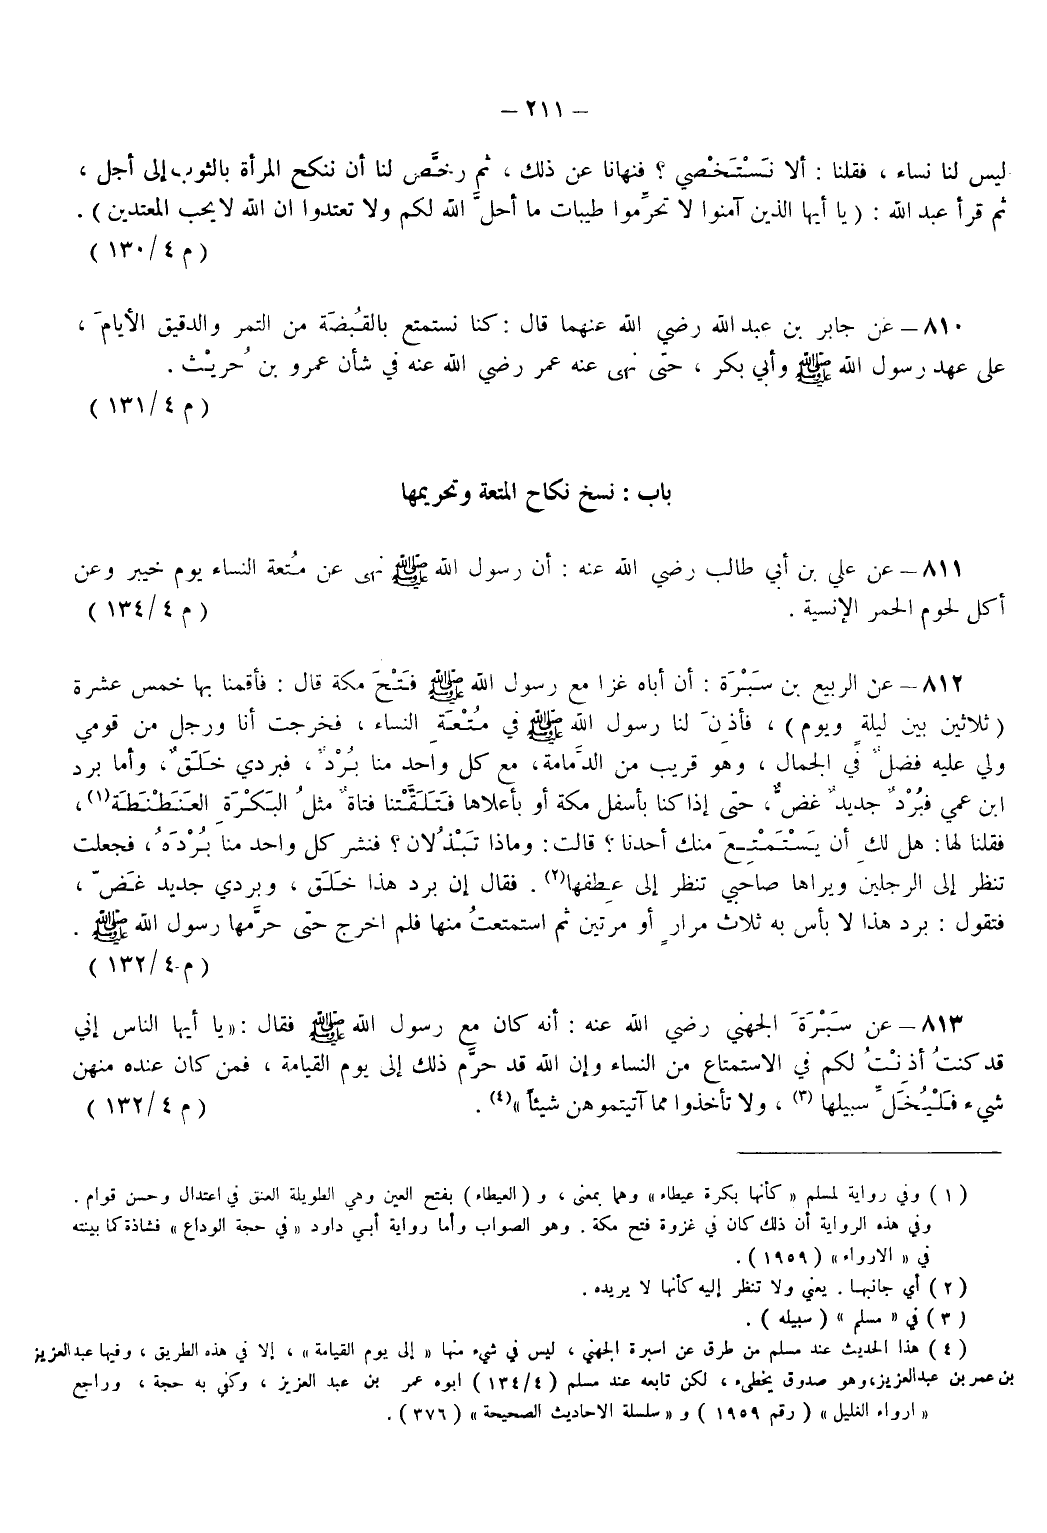 – ٢١١ –
ليس لنا نساء ، فقلنا : ألا نَسْتَخْصي ؟ فنهانا عن ذلك ، ثم رخَّص لنا أن ننكح المرأة بالثوب إلى أجل ،
ثم قرأ عبد الله : ( يا أيها الذين آمنوا لا تحرِّموا طيبات ما أحلَّ الله لكم ولا تعتدوا ان الله لا يحب المعتدين ) .
( م ٤/ ١٣٠ )
٨١٠ – عن جابر بن عبد الله رضي الله عنهما قال : كنا نستمتع بالقُبضَة من التمر والدقيق الأيامَ ،
على عهد رسول الله ﷺ وأبي بكر ، حتّى نهى عنه عمر رضي الله عنه في شأن عمرو بن حُريْث .
( م ٤/ ١٣١ )
باب : نسخ نكاح المتعة وتحريمها
٨١١ – عن علي بن أبي طالب رضي الله عنه : أن رسول الله ﷺ نهى عن مُتعة النساء يوم خيبر وعن
أكل لحوم الحمر الإنسية . ( م ٤/ ١٣٤ )
٨١٢ – عن الربيع بن سَبْرَة : أن أباه غزا مع رسول الله ﷺ فَتْحَ مكة قال : فأقمنا بها خمس عشرة
( ثلاثين بين ليلةٍ ويوم ) ، فأذِنَ لنا رسول الله ﷺ في مُتْعَةِ النساء ، فخرجت أنا ورجل من قومي
ولي عليه فضلٌ في الجمال ، وهو قريب من الدَّمامة، مع كل واحد منا بُرْدٌ ، فبردي خَلَقٌ ، وأما برد
ابن عمي فبُرْدٌ جديدٌ غضٌّ، حتّى إذا كنا بأسفل مكة أو بأعلاها فَتَلَقَّتْنا فتاةٌ مثلُ البَكْرَةِ العَنَطْنَطَة(١) ،
فقلنا لها : هل لكِ أن يَسْتَمْتِعَ منك أحدنا ؟ قالت : وماذا تَبْذُلان ؟ فنشر كل واحد منا بُرْدَهُ ، فجعلت
تنظر إلى الرجلين ويراها صاحبي تنظر إلى عِطفها(٢) . فقال إن برد هذا خَلَق ، وبردي جديد غَضّ ،
فتقول : برد هذا لا بأس به ثلاث مرارٍ أو مرتين ثم استمتعتُ منها فلم اخرج حتّى حرَّمها رسول الله ﷺ .
( م ٤/ ١٣٢ )
٨١٣ – عن سَبْرَةَ الجهني رضي الله عنه : أنه كان مع رسول الله ﷺ فقال : « يا أيها الناس إني
قد كنتُ أذِنْتُ لكم في الاستمتاع من النساء وإن الله قد حرَّم ذلك إلى يوم القيامة ، فمن كان عنده منهن
شيء فَلْيُخَلِّ سبيلها (٣) ، ولا تأخذوا مما آتيتموهن شيئاً »(٤) . ( م ٤/ ١٣٢ )
( ١ ) وفي رواية لمسلم « كأنها بكرة عيطاء » وهما بمعنى ، و ( العيطاء ) بفتح العين وهي الطويلة العنق في اعتدال وحسن قوام .
وفي هذه الرواية أن ذلك كان في غزوة فتح مكة . وهو الصواب وأما رواية أبي داود « في حجة الوداع » فشاذة كما بينته
في « الارواء » ( ١٩٥٩ ) .
( ٢ ) أي جانبها . يعني ولا تنظر إليه كأنها لا يريده .
( ٣ ) في « مسلم » ( سبيله ) .
( ٤ ) هذا الحديث عند مسلم من طرق عن اسبرة الجهني ، ليس في شيء منها « إلى يوم القيامة » ، إلا في هذه الطريق ، وفيها عبد العزيز
بن عمر بن عبدالعزيز، وهو صدوق يخطىء ، لكن تابعه عند مسلم ( ٤/ ١٣٤ ) ابوه عمر بن عبد العزيز ، وكفي به حجة ، وراجع
« ارواء الغليل » ( رقم ١٩٥٩ ) و « سلسلة الاحاديث الصحيحة » ( ٣٧٦ ) .